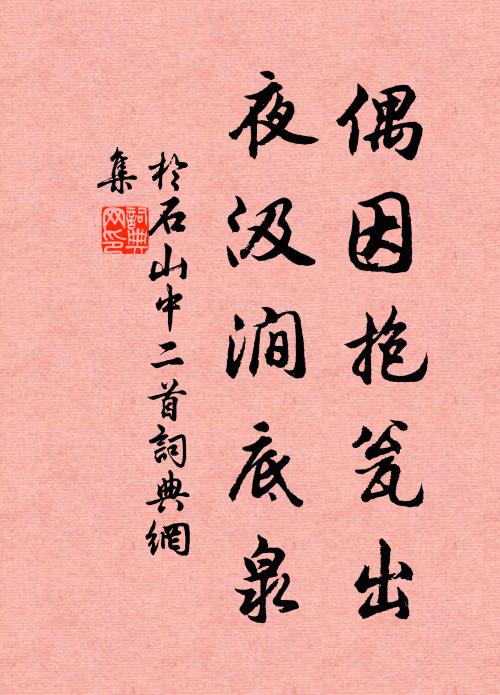 偶因抱瓮出
夜汲澗底泉
於石山中二首詞典網
集
詞典
网印